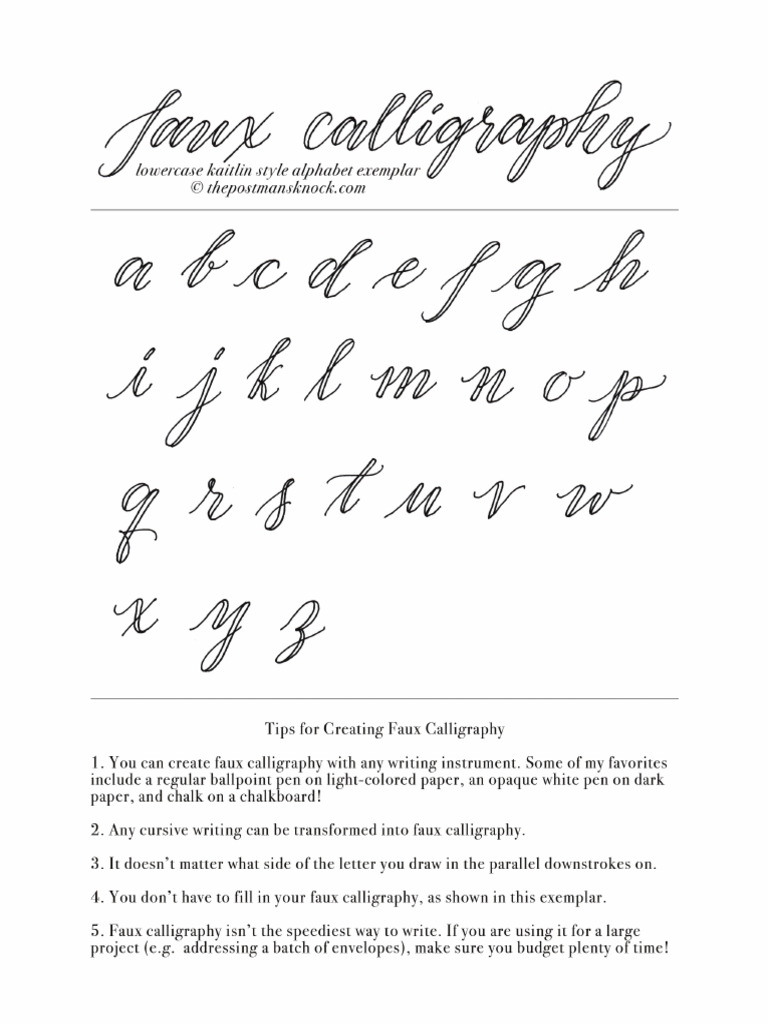 faux calligraphy
lowercase kaitlin style alphabet exemplar
© thepostmansknock.com
a b c d e f g h
i j k l m n o p
q r s t u v w
x y z
Tips for Creating Faux Calligraphy
1. You can create faux calligraphy with any writing instrument. Some of my favorites
include a regular ballpoint pen on light-colored paper, an opaque white pen on dark
paper, and chalk on a chalkboard!
2. Any cursive writing can be transformed into faux calligraphy.
3. It doesn't matter what side of the letter you draw in the parallel downstrokes on.
4. You don't have to fill in your faux calligraphy, as shown in this exemplar.
5. Faux calligraphy isn't the speediest way to write. If you are using it for a large
project (e.g. addressing a batch of envelopes), make sure you budget plenty of time!